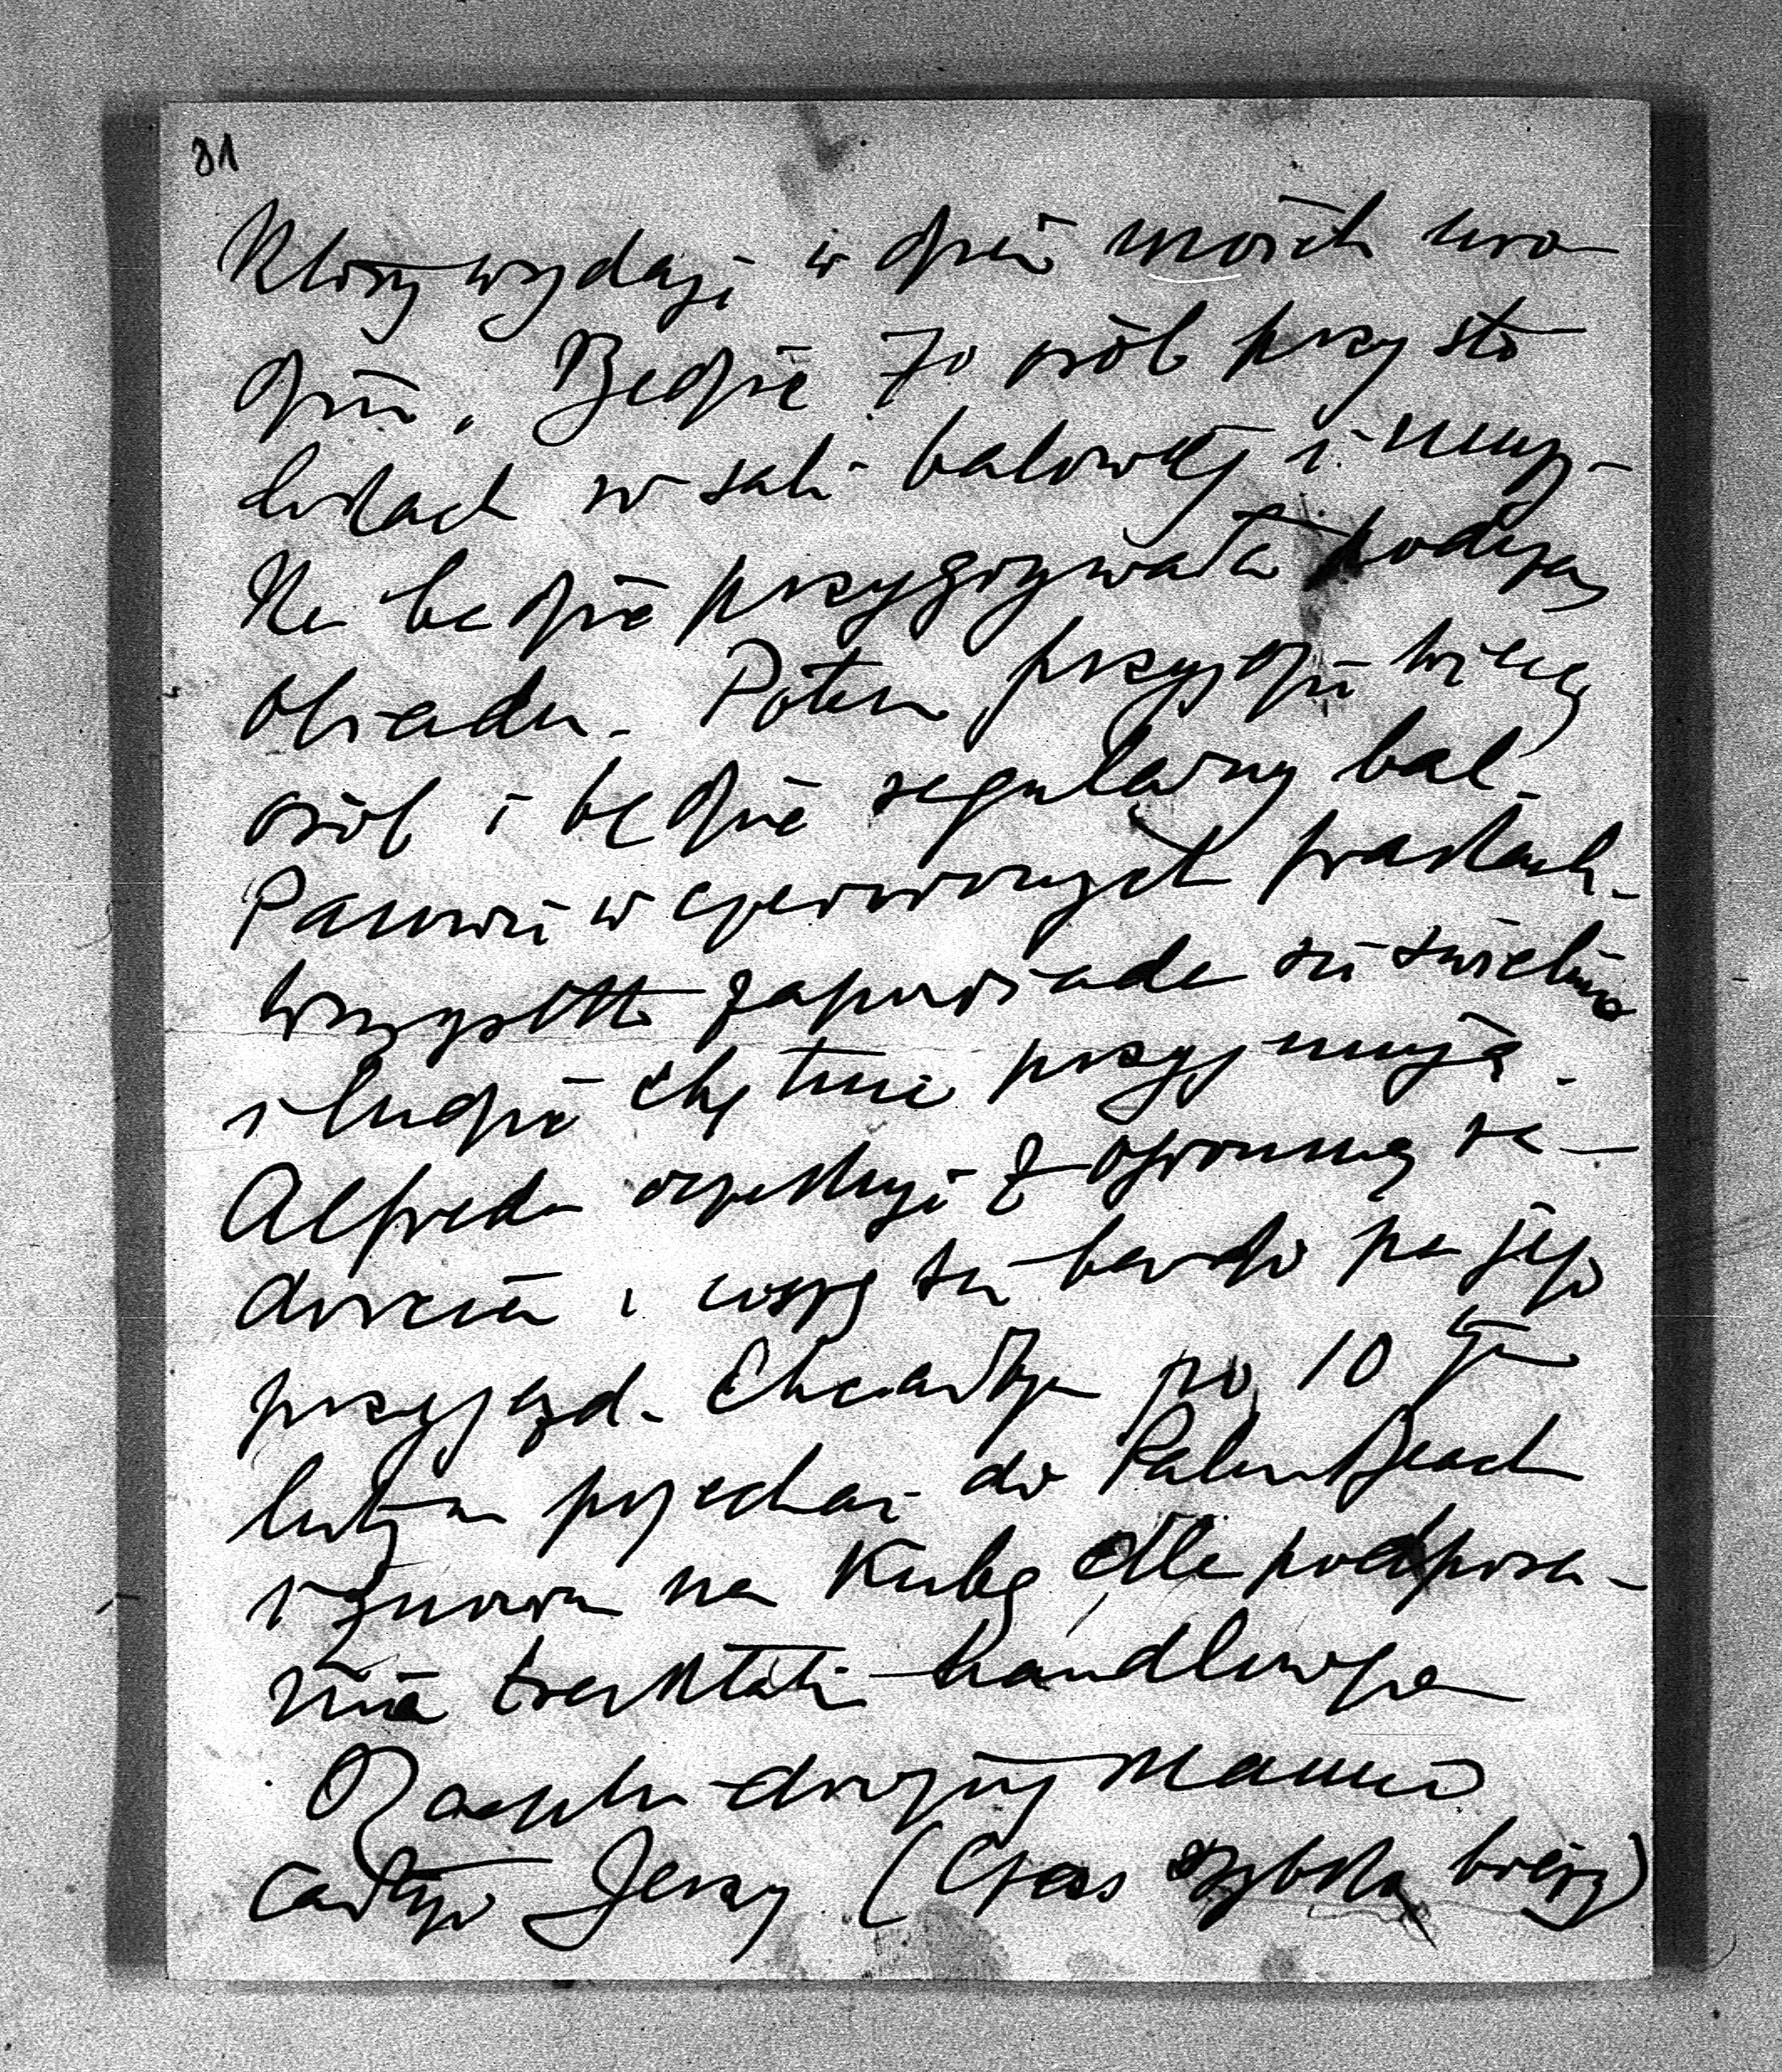 81
który wydaję w dzień moich uro-
dzin. Będzie 70 osób przy sto-
likach w sali balowej i muzy-
ka będzie przygrywała podczas
obiadu. Potem przyjdzie więcej
osób i będzie regularny bal.
Panowie w czerwonych frakach.
Wszystko zapowiada się świetnie
i ludzie chętnie przyjmują.
Alfreda oczekuję z ogromną ra-
dością i cieszę się bardzo na jego
przyjazd. Chciałbym po 10 tym
lutym pojechać do Palm Beach
i znowu na Kubę dla podpisa-
nia traktatu handlowego
Rączki drogiej Mamie
całuję Jerzy (Czas szybko bieży)